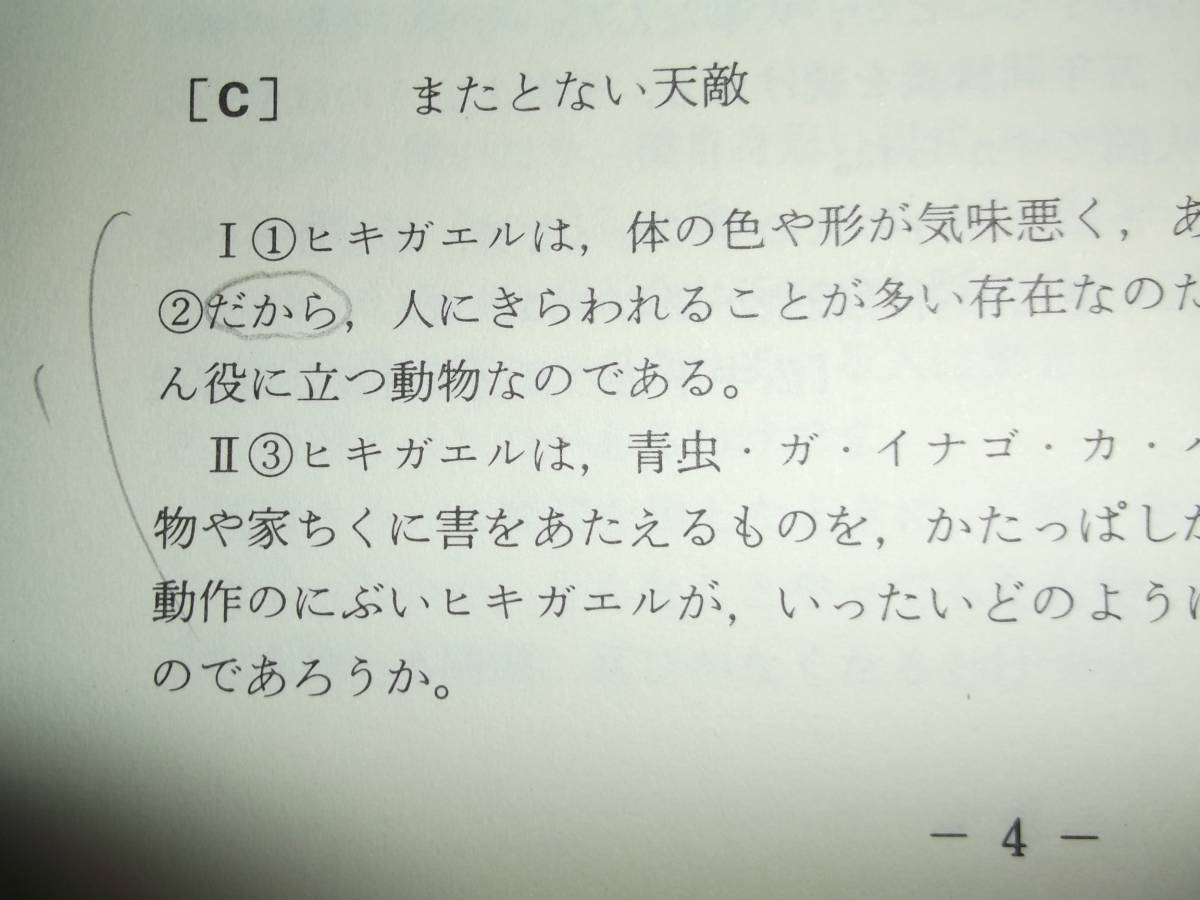 [C] またとない天敵
Ⅰ①ヒキガエルは，体の色や形が気味悪く，あ
②だから，人にきらわれることが多い存在なのだ
ん役に立つ動物なのである。
Ⅱ③ヒキガエルは，青虫・ガ・イナゴ・カ・
物や家ちくに害をあたえるものを，かたっぱしか
動作のにぶいヒキガエルが，いったいどのように
のであろうか。
― 4 ―